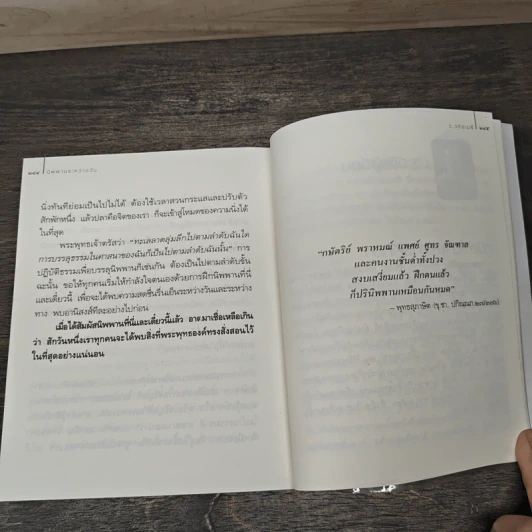 นิ่งทันทีย่อมเป็นไปไม่ได้ ต้องใช้เวลาสวนกระแสและปรับตัว
สักพักหนึ่ง แล้วปลาคือจิตของเรา ก็จะเข้าสู่โหมดของความนิ่งได้
ในที่สุด
พระพุทธเจ้าตรัสว่า "ทะเลลาดลุ่มลึกไปตามลำดับฉันใด
การบรรลุธรรมในศาสนาของฉันก็เป็นไปตามลำดับฉันนั้น" การ
ปฏิบัติธรรมเพื่อบรรลุนิพพานก็เช่นกัน ต้องเป็นไปตามลำดับขั้น
ฉะนั้น ขอให้ทุกคนเริ่มให้กำลังใจตนเองด้วยการฝึกนิพพานที่นี่
และเดี๋ยวนี้ เพื่อจะได้พบความสดชื่นรื่นเย็นระหว่างวันและระหว่าง
ทาง พบอานิสงส์ทีละอย่างไปก่อน
เมื่อได้สัมผัสนิพพานที่นี่และเดี๋ยวนี้แล้ว อาจมาเชื่อเหลือเกิน
ว่า สักวันหนึ่งเราทุกคนจะได้พบสิ่งที่พระพุทธองค์ทรงสั่งสอนไว้
ในที่สุดอย่างแน่นอน
ว.วชิรเมธี
"กษัตริย์ พราหมณ์ แพศย์ ศูทร จัณฑาล
และคนงานชั้นต่ำทั้งปวง
สงบเสงี่ยมแล้ว ฝึกตนแล้ว
ก็ปรินิพพานเหมือนกันหมด"
– พุทธสุภาษิต